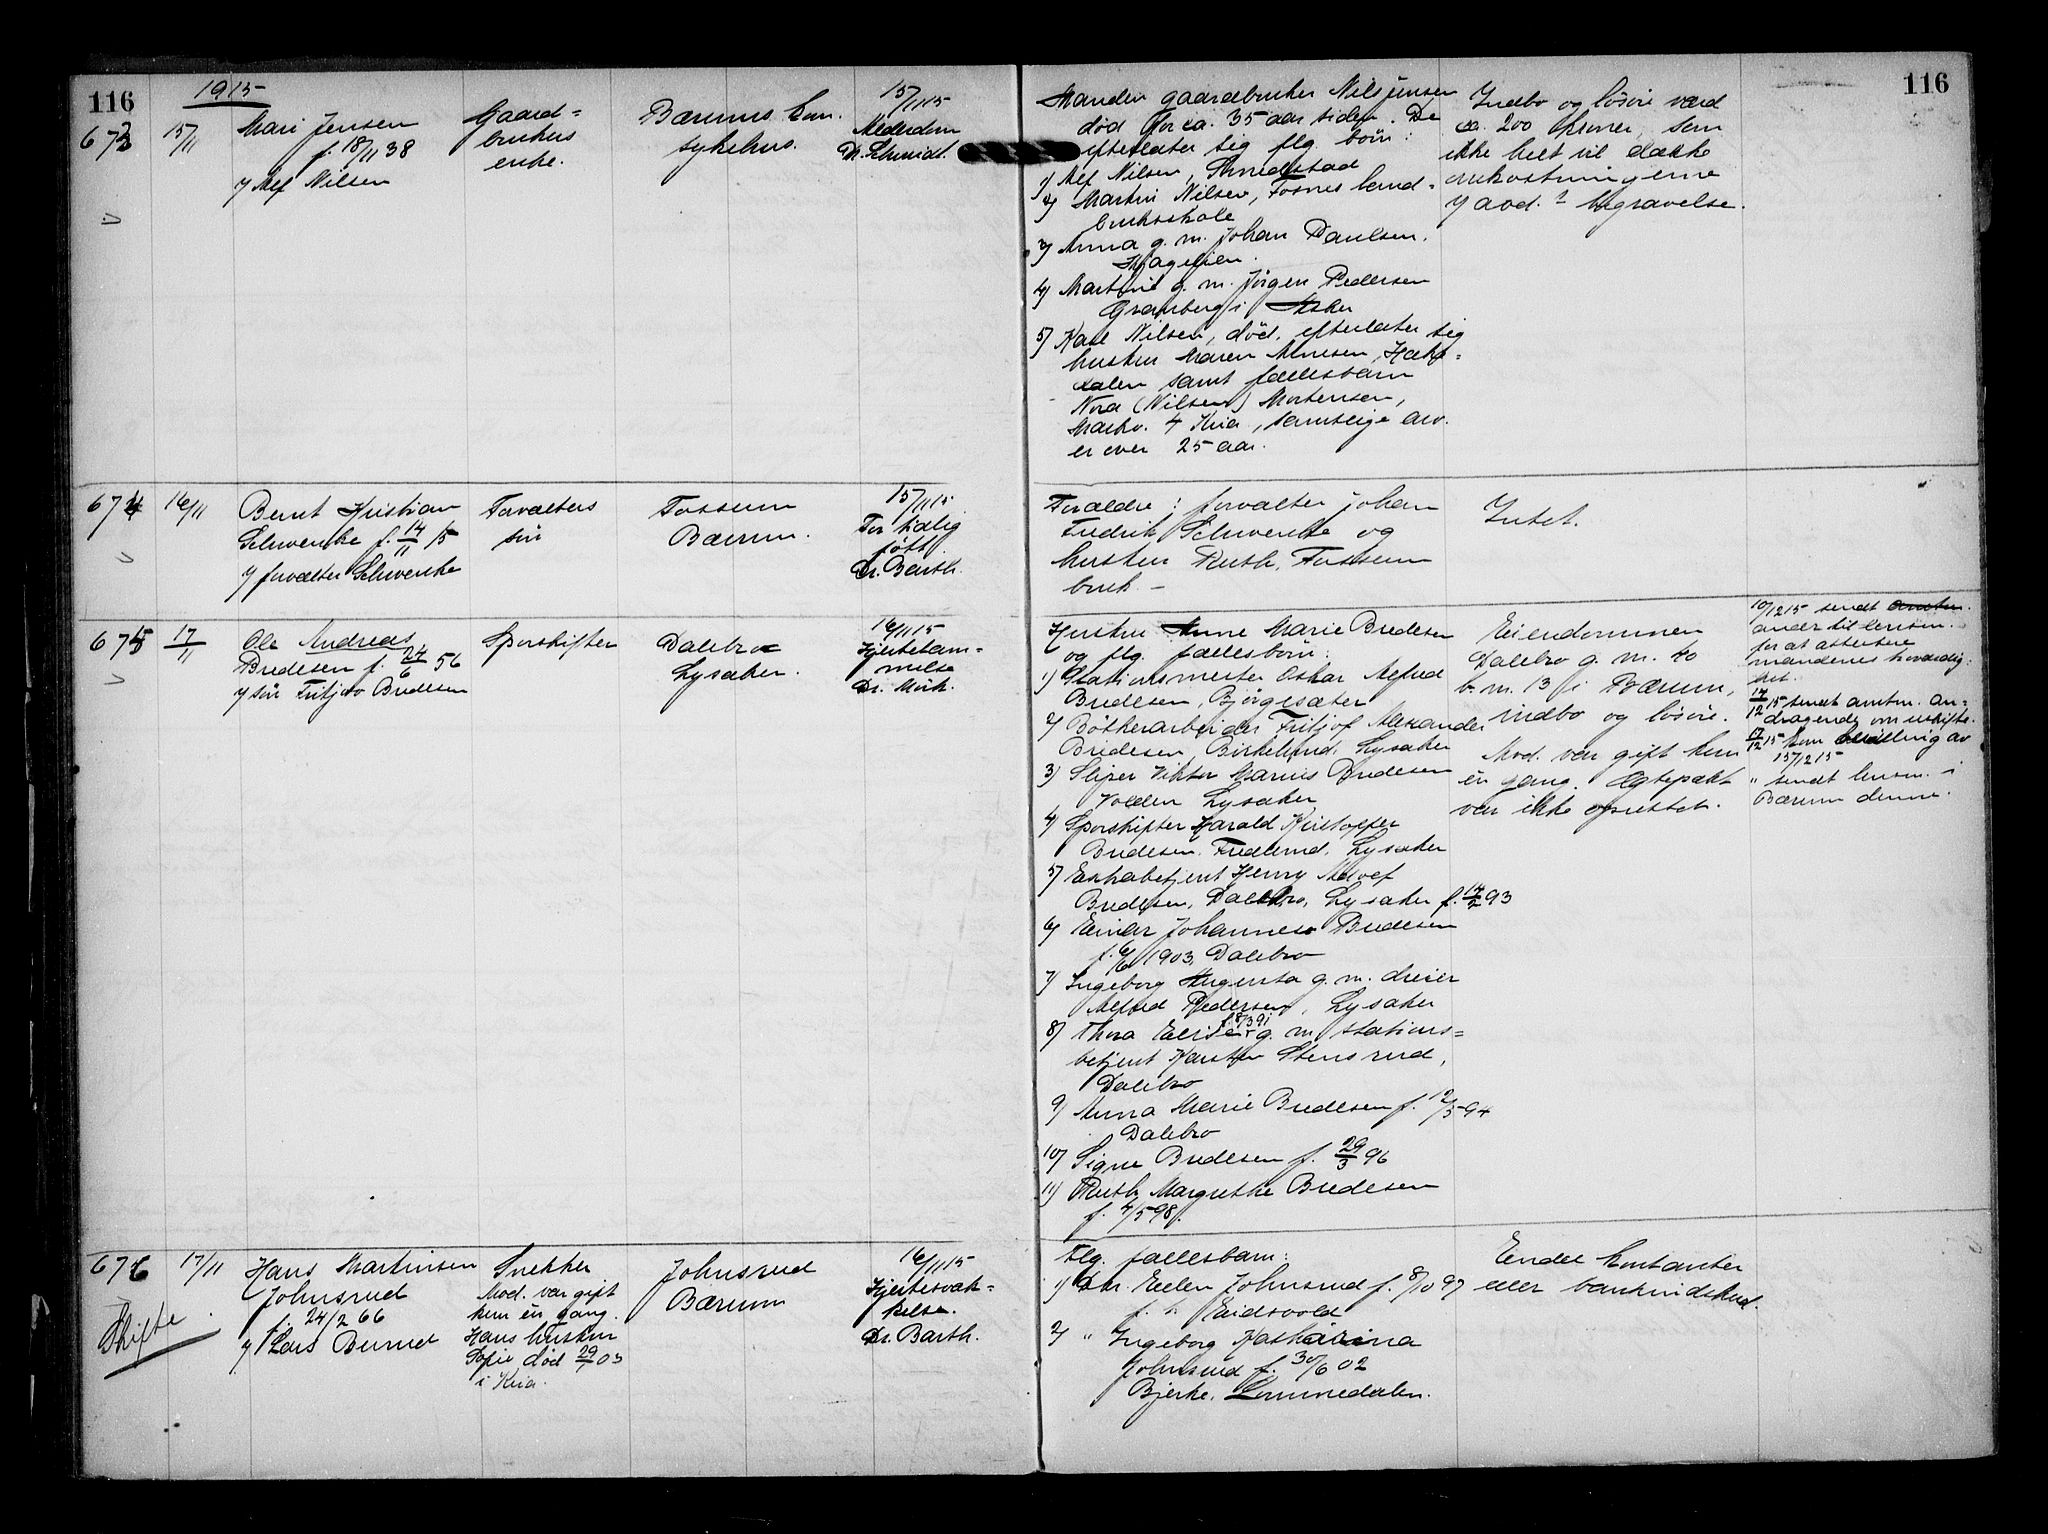 116
1915
673
15/11
Mari Jensen
f. 18/11 38
v/ Alf Nilsen
Gaard=
brukers
enke.
Bærums kom.
sykehus.
15/11 15
Alderdom
Dr. Schmidt.
674
16/11
Bernt Kristian
Schwenke f. 14/11 15
v/ forvalter Schwenke
Forvalters
søn
Fossum
Bærum.
15/11 15
For tidlig
født.
Dr. Barth.
675
17/11
Ole Andreas
Bredesen f. 24/6 56
v/ søn Fritjov Bredesen
Sporskifter
Dalebro
Lysaker.
16/11 15
Hjertelam=
melse
Dr. Mørk.
676
17/11
Skifte
Hans Martinsen
Johnsrud
f. 24/2 66
v/ Lars Burud
Snekker
Avd. var gift
kun én gang.
Hans hustru
Sofie død 29/1 03
i Kria.
Johnsrud
Bærum
16/11 15
Hjertesvak-
kelse.
Dr. Barth.
116
Manden gaardbruker Nils Jensen
død for ca. 35 aar siden. De
efterlater sig flg. børn:
1) Alf Nilsen, Smedstad
2) Martin Nilsen, Fosnes land=
bruksskole
3) Anna g. m. Johan Paulsen,
4) Martine g. m. Jørgen Pedersen
Granberg i Asker
5) Karl Nilsen, død, efterlater sig
hustru Maren Nilsen, Hake=
dalen samt fællesbarn
Nora (Nilsen) Mortensen,
Markv. 4 Kria, samtlige arv.
er over 25 aar.
Indbo og løsøre værd
ca. 200 kroner, som
ikke helt vil dække
omkostningerne
v/ avd.s begravelse.
Forældre: forvalter Johan
Fredrik Schwenke og
hustru Ruth, Fossum
bruk. –
Intet.
Hustru Anne Marie Bredesen
og flg. fællesbørn:
1) Stationsmester Oskar Alfred
Bredesen, Bjørgesæter
2) Bøtkerarbeider Fritjof Alexander
Bredesen, Birkelund, Lysaker
3) Sliper Viktor Marius Bredesen
Volden Lysaker
4) Sporskifter Harald Kristoffer
Bredesen. Fredlund. Lysaker
5) Extrabetjent Henry Adolf
Bredesen, Dalebro, Lysaker f. 14/2 93
6) Einar Johannes Bredesen
f. 6/6 1903, Dalebro
7) Ingeborg Augusta g. m. dreier
Alfred Pedersen, Lysaker
8) Thora Elise f. 8/3 91 g. m. stations=
betjent Karsten Stensrud,
Dalebro
9) Anna Marie Bredesen f. 12/5 94
Dalebro
10) Signe Bredesen f. 29/3 96
11) Ruth Margrethe Bredesen
f. 4/5 98.
Eiendommen
Dalebro g. m. 40
b. m. 13 i Bærum,
indbo og løsøre.
Avd. var gift kun
én gang. Ægtepakt
var ikke oprettet.
10/12 15 sendt
for at attestere
mandens
14/12 15 sendt amtm. an=
dragende om uskifte.
17/12 15 kom bevilling av
15/12 15
" sendt lensm. i
Bærum denne.
Flg. fællesbarn:
1) Dtr. Ellen Johnsrud f. 8/10 97
Eidsvold
2) " Ingeborg Katharina
Johnsrud f. 30/6 02
Bjerke. Lommedalen.
Endel kontanter
eller bankindskud.